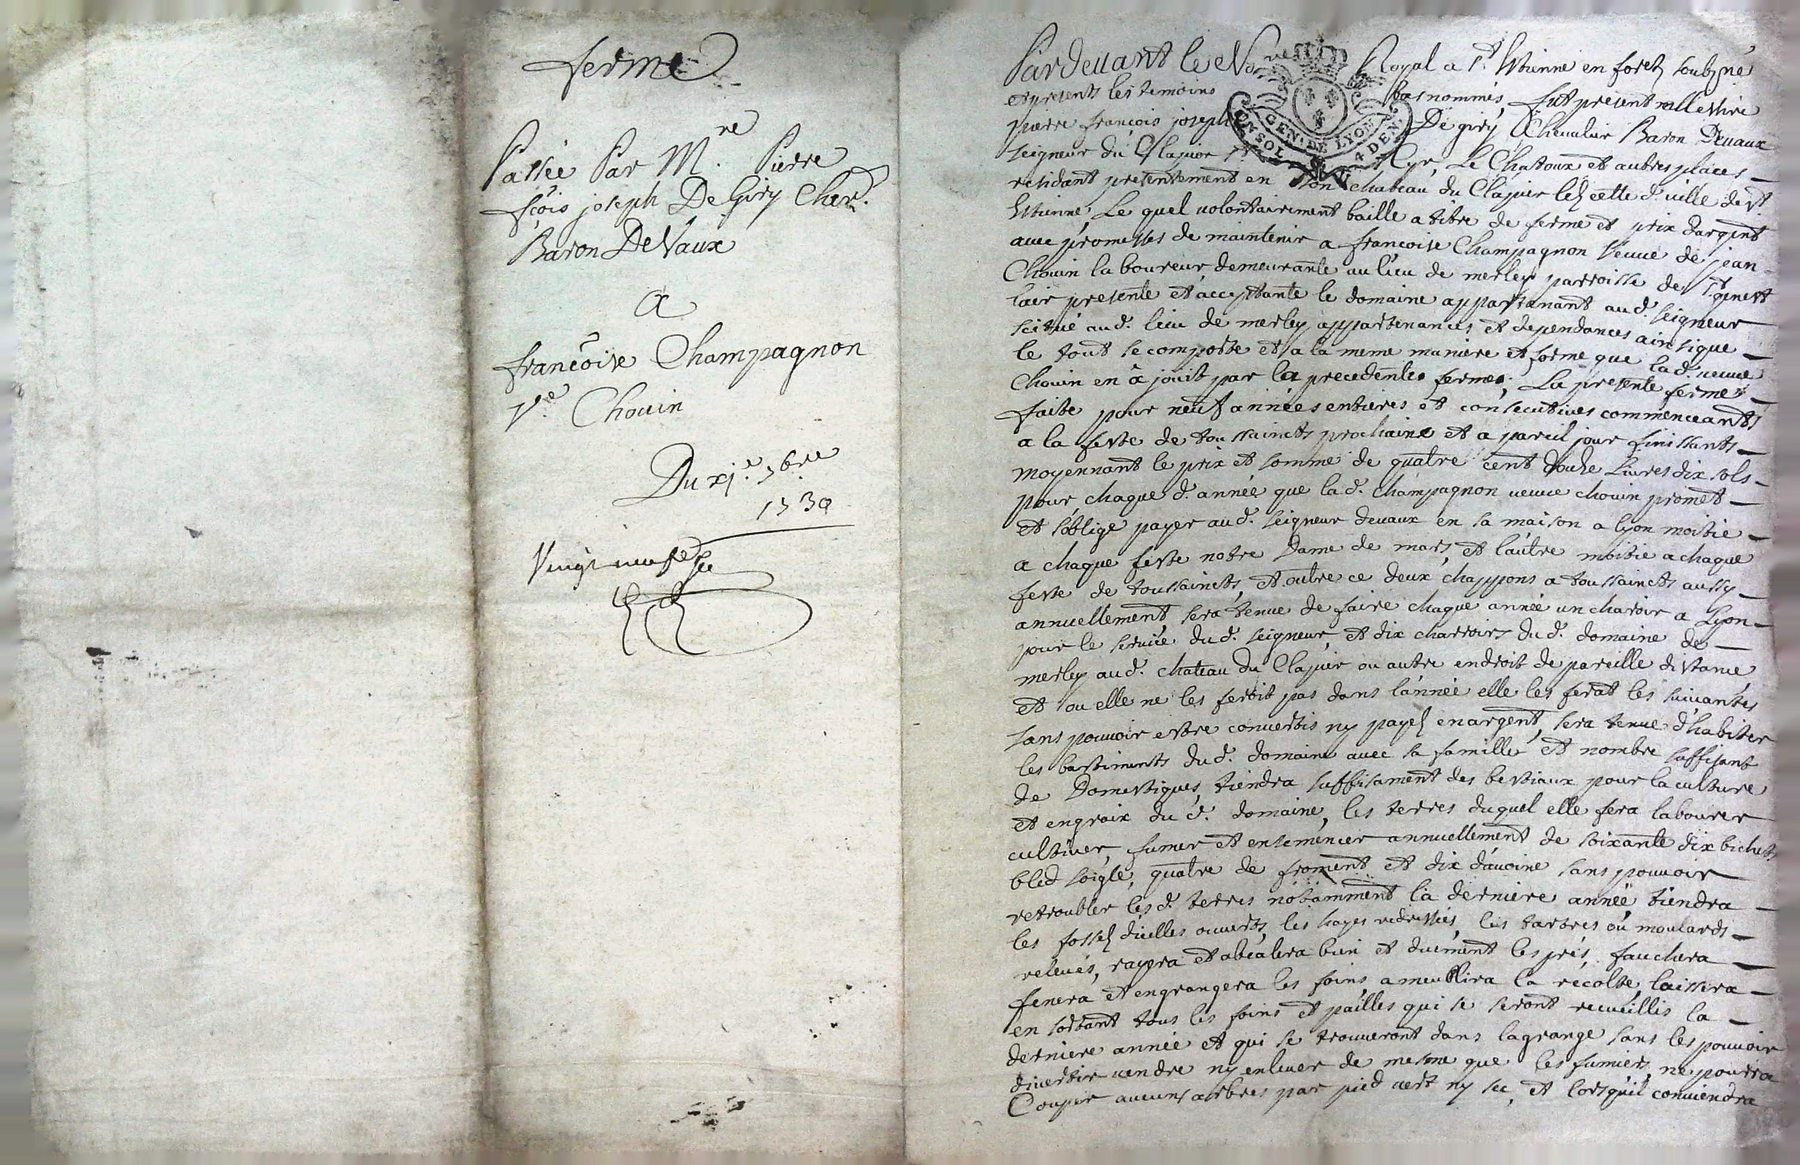 ferme
Passée Par M.re Pierre
fçois joseph De Giry Cher.
Baron De Vaux
a
francoise Champagnon
Ve. Chouin
Du xj.e 9bre
1730
Vingt neuf
Pardevant le No Royal a St. Etienne en forez soubsigné
et presents les temoins bas nommés, fut present messire
pierre françois joseph De giry Chevalier Baron Devaux
seigneur du Clapier St Cyr, Le Chattoux et autres places
residant presentement en son chateau du Clapier lez cette d. ville de St.
Etienne, Le quel volontairement baille a titre de ferme et prix dargent
avec promesses de maintenir a francoise Champagnon veuve de jean
Chouin laboureur demeurante au lieu de merley parroisse de St. genest
lair presente et acceptante le domaine appartenant aud. seigneur
scitué aud. lieu de merley appartenances et dependances ainsi que
le tout se comporte et a la meme maniere et forme que lad. veuve
Chouin en a jouit par les precedentes fermes, La presente ferme
faite pour neuf années entieres et consecutives commenceants
a la feste de toussaincts prochaine et a pareil jour finissants
moyennant le prix et somme de quatre cent douze Livres dix sols
pour chaque d. année que lad. Champagnon veuve chouin promet
et soblige payer aud. seigneur devaux en sa maison a lyon moitié
a chaque feste notre Dame de mars, et lautre moitié a chaque
feste de toussaincts, et outre ce deux chappons a toussaincts aussy
annuellement, sera tenue de faire chaque année un charoir a Lyon
pour le service dud. seigneur, et dix charroirs dud. domaine de
merley aud. chateau du Clapier ou autre endroit de pareille distance,
et ou elle ne les feroit pas dans lannée elle les ferat les suivantes
sans pouvoir estre convertis ny payez en argent, sera tenue dhabiter
les bastiments dud. domaine avec sa famille et nombre suffisant
de Domestiques, tiendra suffisament des bestiaux pour la culture
et engraix dud. domaine, les terres duquel elle fera labourer
cultiver, fumer et ensemencer annuellement de soixante dix bichets
bled soigle, quatre de froment et dix davoine sans pouvoir
retroubler lesd. terres notamment la derniere année, tiendra
les fossez dicelles ouverts, les hayes redressées, les tartres ou moulards
relevés, rayera et abealera bien et duement les prés, fauchera
fenera et engrangera les foins, ameublira la recolte, laissera
en sortant tous les foins et pailles qui se seront recueillis la
derniere année et qui se trouveront dans la grange sans les pouvoir
divertir vendre ny enlever de mesme que les fumiers, ne pourra
Couper aucuns arbres par pied vert ny sec, et lorsquil conviendra
GEN. DE LYON
4 DEN